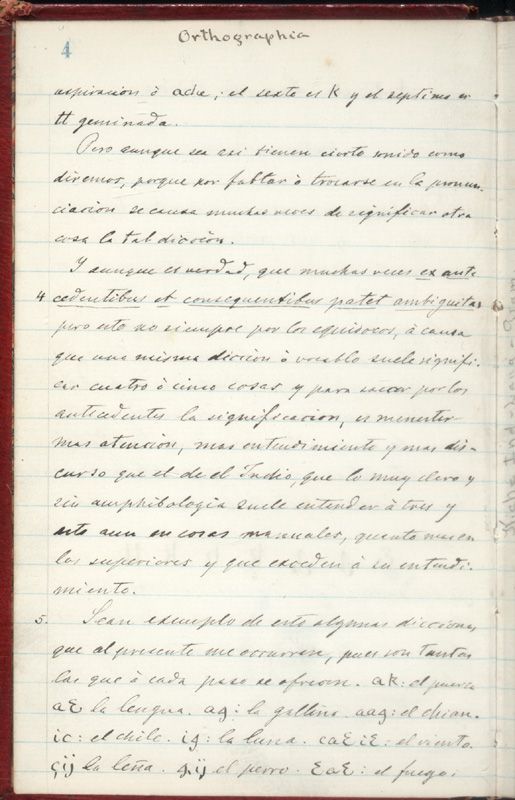 4
Orthographia
aspiracion ò ; el sexto es K y el septimo es
tt geminada.
Pero aunque sea asi tienen cierto sonido como
diremos, porque por faltar ò trocarse en la pronun-
ciacion se causa muchas veces de significar otra
cosa la tal diccion.
Y aunque es verdad, que muchas veces ex ante
4 cedentibus et consequentibus patet ambiguitas
pero esto no siempre por los equivocos, à causa
que una misma diccion ò vocablo suele signifi-
car cuatro ò cinco cosas y para sacar por los
antecedentes la significacion, es menester
mas atencion, mas entendimiento y mas dis-
curso que el de el Indio, que lo muy claro y
sin amphibologia suele entender à tres y
esto aun en cosas manuales, quanto mas en
las superiores y que exceden à su entendi-
miento.
5. Sean exemplo de esto algunas dicciones
que al presente me ocurren, pues son tantas
las que à cada paso se ofrecen. ak: el puerco
aƐ la lengua. ag: la gallina. aag: el chian.
ic: el chile. ig: la luna. caƐiƐ: el viento.
çij la leña. gij el perro. ƐaƐ: el fuego: